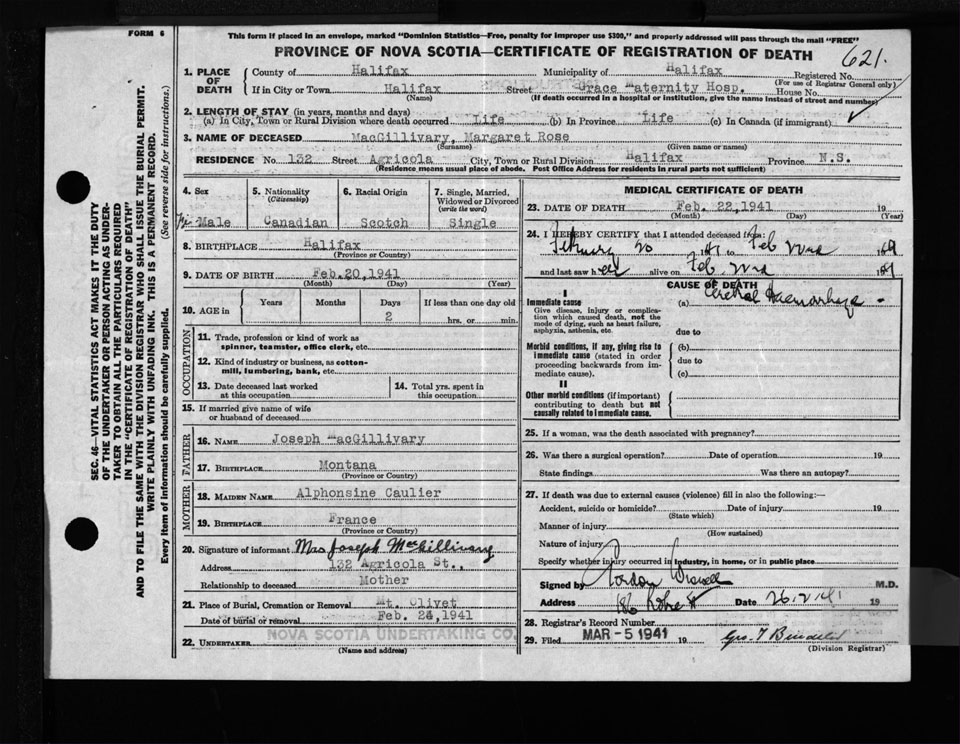 FORM 6
This form if placed in an envelope, marked "Dominion Statistics—Free, penalty for improper use $300," and properly addressed will pass through the mail "FREE"
PROVINCE OF NOVA SCOTIA—CERTIFICATE OF REGISTRATION OF DEATH
621.
1. PLACE OF DEATH
County of Halifax Municipality of Halifax Registered No.
(For use of Registrar General only)
If in City or Town Halifax Street Grace Maternity Hosp. House No.
(Name) (If death occurred in a hospital or institution, give the name instead of street and number)
2. LENGTH OF STAY (in years, months and days)
(a) In City, Town or Rural Division where death occurred Life (b) In Province Life (c) In Canada (if immigrant)
3. NAME OF DECEASED MacGillivary, Margaret Rose
(Surname) (Given name or names)
RESIDENCE No. 132 Street Agricola City, Town or Rural Division Halifax Province N.S.
(Residence means usual place of abode. Post Office Address for residents in rural parts not sufficient)
4. Sex
Male
5. Nationality
(Citizenship)
Canadian
6. Racial Origin
Scotch
7. Single, Married, Widowed or Divorced
(write the word)
Single
8. BIRTHPLACE Halifax
(Province or Country)
9. DATE OF BIRTH Feb.20,1941
(Month) (Day) (Year)
10. AGE in
Years Months Days If less than one day old
2
hrs. or min.
OCCUPATION
11. Trade, profession or kind of work as
spinner, teamster, office clerk, etc.
12. Kind of industry or business, as cotton-
mill, lumbering, bank, etc.
13. Date deceased last worked
at this occupation
14. Total yrs. spent in
this occupation
15. If married give name of wife
or husband of deceased
FATHER
16. NAME Joseph MacGillivary
17. BIRTHPLACE Montana
(Province or Country)
MOTHER
18. MAIDEN NAME Alphonsine Caulier
19. BIRTHPLACE France
(Province or Country)
20. Signature of informant Mrs Joseph MacGillivary
Address 132 Agricola St.,
Relationship to deceased Mother
21. Place of Burial, Cremation or Removal Mt. Olivet
Date of burial or removal Feb. 24,1941
22. UNDERTAKER NOVA SCOTIA UNDERTAKING CO.
(Name and address)
MEDICAL CERTIFICATE OF DEATH
23. DATE OF DEATH Feb. 22,1941 19
(Month) (Day) (Year)
24. I HEREBY CERTIFY that I attended deceased from:
to Feb 19
and last saw alive on Feb. 19
CAUSE OF DEATH
I
Immediate cause (a) Cerebral Haemorrhage -
Give disease, injury or complica-
tion which caused death, not the
mode of dying, such as heart failure,
asphyxia, asthenia, etc.
due to
Morbid conditions, if any, giving rise to
immediate cause (stated in order
proceeding backwards from im-
mediate cause).
(b)
due to
(c)
II
Other morbid conditions (if important)
contributing to death but not
causally related to immediate cause.
25. If a woman, was the death associated with pregnancy?
26. Was there a surgical operation? Date of operation 19
State findings Was there an autopsy?
27. If death was due to external causes (violence) fill in also the following:—
Accident, suicide or homicide? Date of injury 19
(State which)
Manner of injury
(How sustained)
Nature of injury
Specify whether injury occurred in industry, in home, or in public place
Signed by Gordon M.D.
Address 186 Date 19
28. Registrar's Record Number
29. Filed MAR - 5 1941 19
(Division Registrar)
SEC. 46—VITAL STATISTICS ACT MAKES IT THE DUTY
OF THE UNDERTAKER OR PERSON ACTING AS UNDER-
TAKER TO OBTAIN ALL THE PARTICULARS REQUIRED
IN THE "CERTIFICATE OF REGISTRATION OF DEATH"
AND TO FILE THE SAME WITH THE DIVISION REGISTRAR WHO SHALL ISSUE THE BURIAL PERMIT.
WRITE PLAINLY WITH UNFADING INK. THIS IS A PERMANENT RECORD.
Every item of information should be carefully supplied. (See reverse side for instructions.)